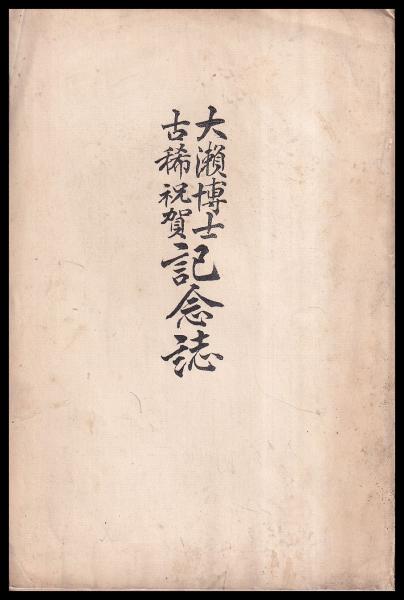 大瀬博士
古稀祝賀
記念誌